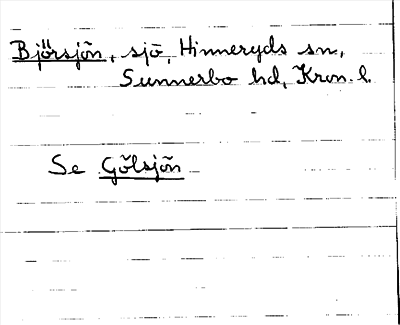 Björsjön, sjö, Hinneryds sn,
Sunnerbo hd, Kron. l.
Se Gölsjön